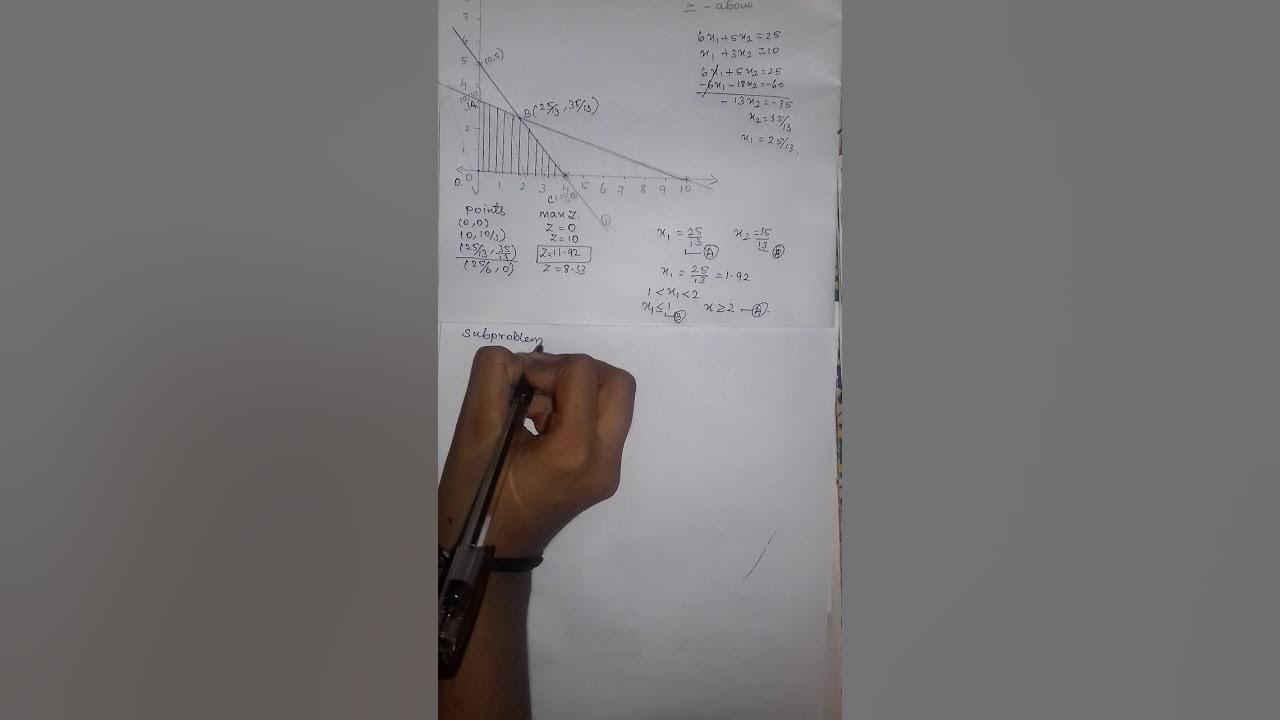 ≥ - above
6x₁+5x₂=25
x₁+3x₂=10
6x₁+5x₂=25
-6x₁-18x₂=-60
-13x₂=-35
x₂=35/13
x₁=25/13.
7
6
5 (0,5)
4
3 A
B(25/3, 35/13)
2
1
0 1 2 3 4 5 6 7 8 9 10
C
points max Z.
(0,0) Z=0
(0, 10/3) Z=10
(25/13, 35/13) Z=11.92
(25/6, 0) Z=8.33
x₁=25/13 A x₂=35/13 B
x₁=25/13=1.92
1<x₁<2
x₁≤1 B x≥2 - A.
Subproblem